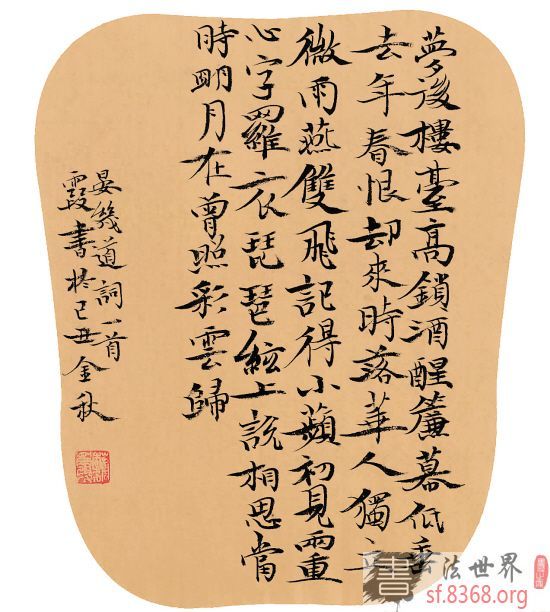 夢後樓臺高鎖酒醒簾幕低垂
去年春恨却來時落華人獨立
微雨燕雙飛記得小蘋初見兩重
心字羅衣琵琶絃上說相思當
時明月在曾照彩雲歸
晏幾道詞一首
霞書於己丑金秋
書法世界
sf.8368.org